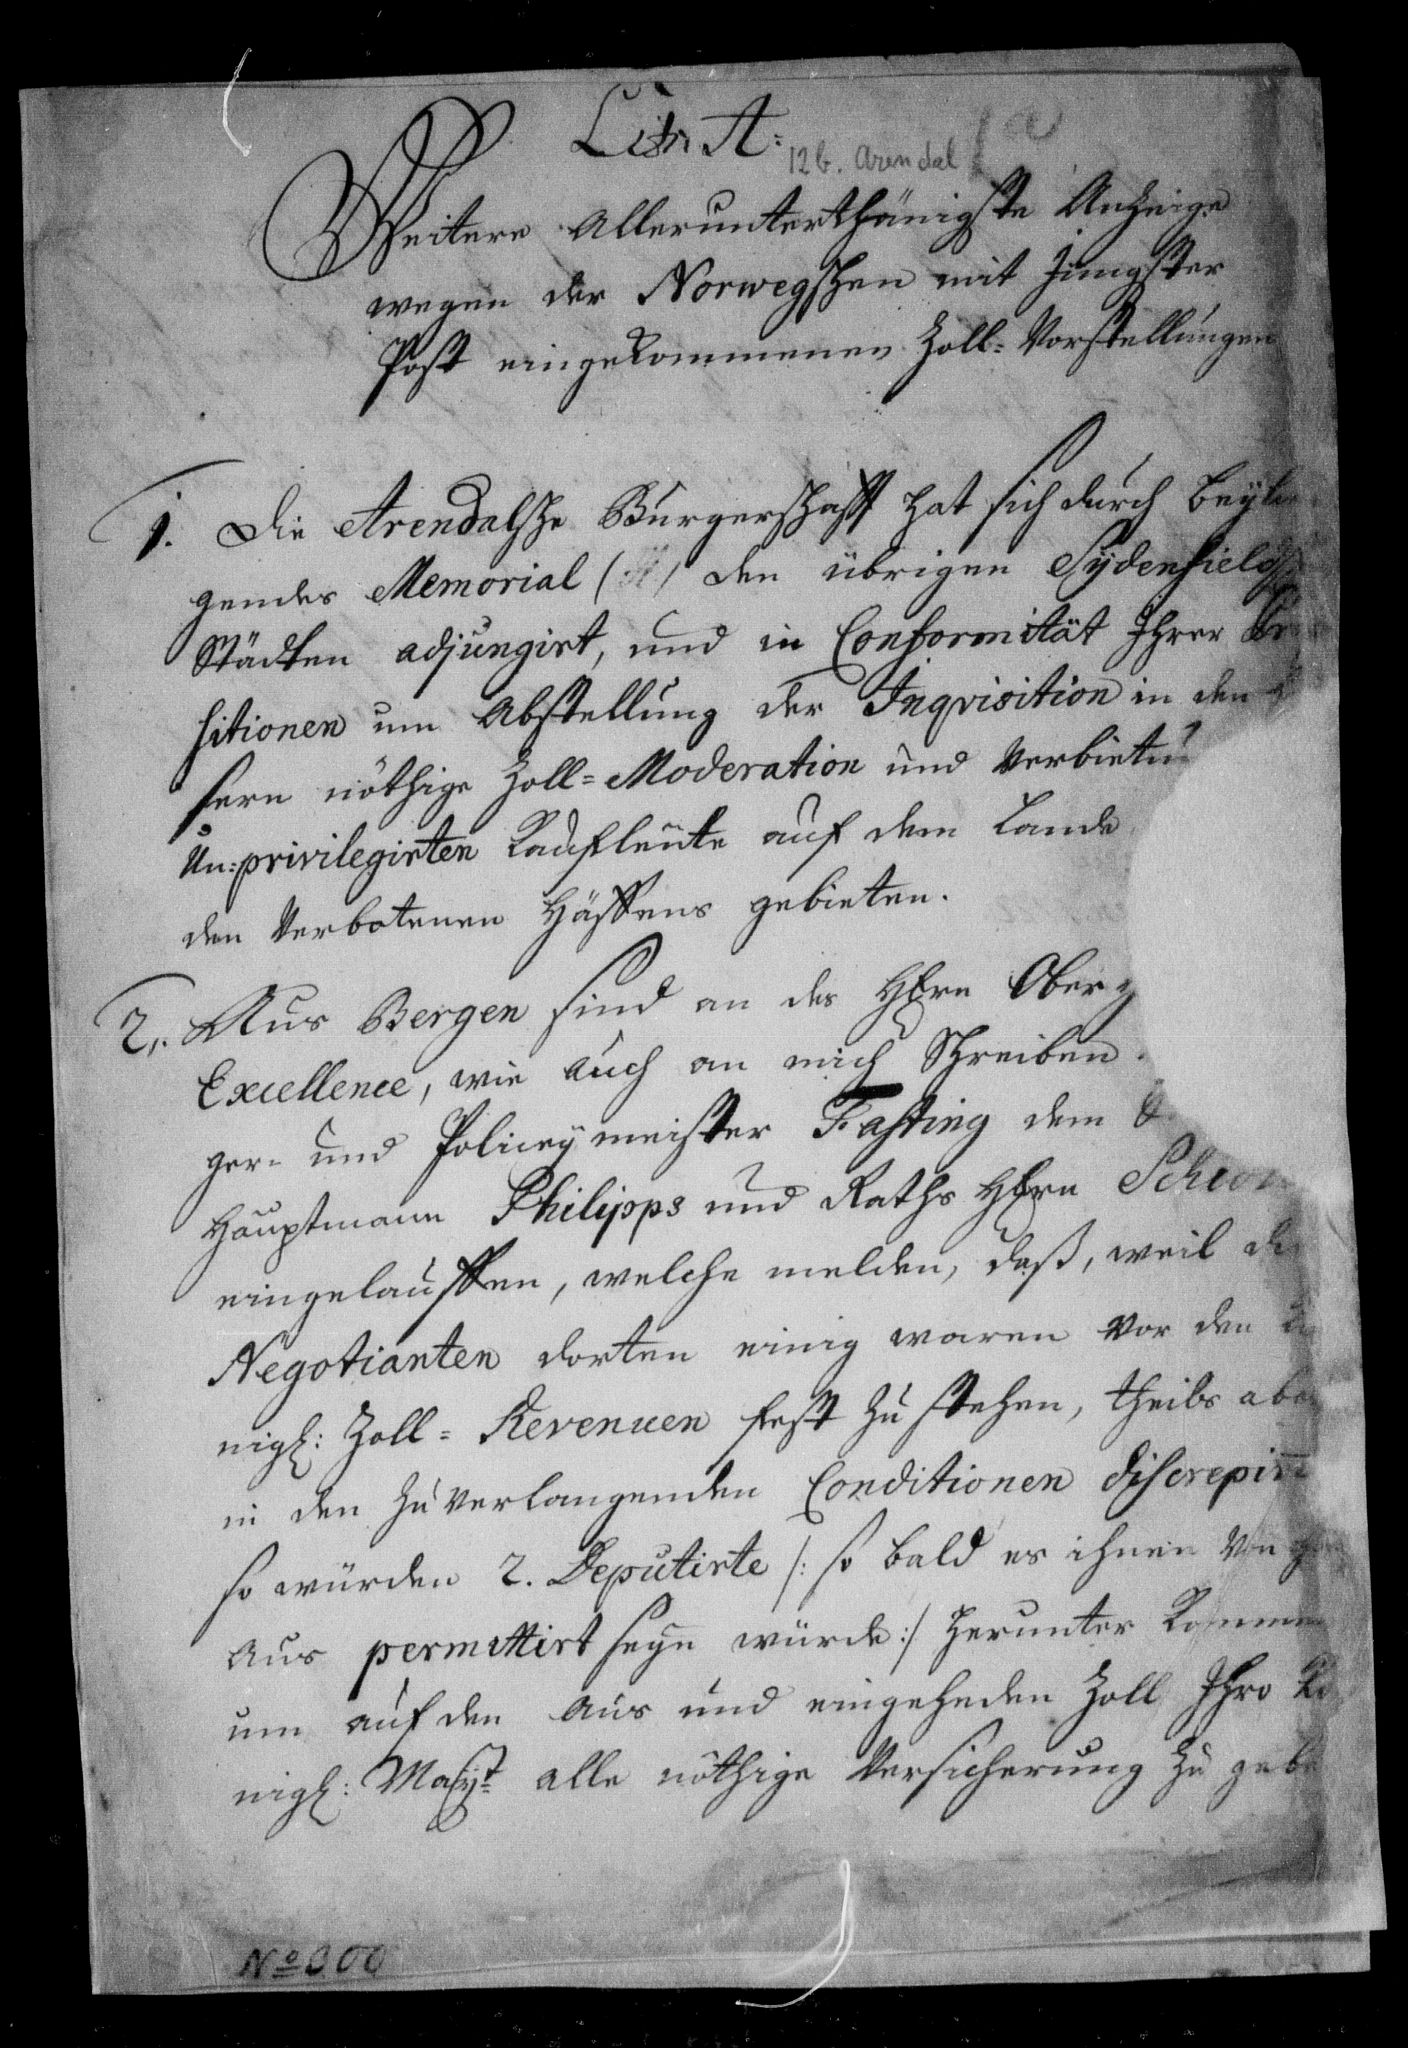 Litr A:
12b. Arendal
Weitere Allerunterthänigste Anzeige
wegen der Norwegschen mit jüngster
Post eingekommenen Zoll-Vorstellungen
1. Die Arendalsche Bürgerschafft hat sich durch beyle
gendes Memorial (A) den übrigen Sydenfields
Städten adjungirt, und in Conformität Ihrer
sitionen um Abstellung der Inqvisition in den
sern nöthige Zoll-Moderation und Verbietu
Un:privilegirten Kaufleüte auf dem Lande
den Verbotenen Häffens gebieten.
2. Aus Bergen sind an des HErrn Ober
Excellence, wie auch an mich Schreiben
ger- und Policeymeister Fasting dem
Hauptmann Philipps und Raths HErrn
eingelauffen, welche melden, daß, weil di
Negotianten dorten einig waren vor den
nigl: Zoll-Revenuen fest zu stehen, theils abe
in den zu verlangenden Conditionen discrepir
so würden 2. Deputirte /: so bald es ihnen von
aus permittirt seyn würde :/ herunter komme
um auf den aus und eingehenden Zoll Ihro Kö
nigl: Mayt alle nöthige Versicherung zu gebe
No 300